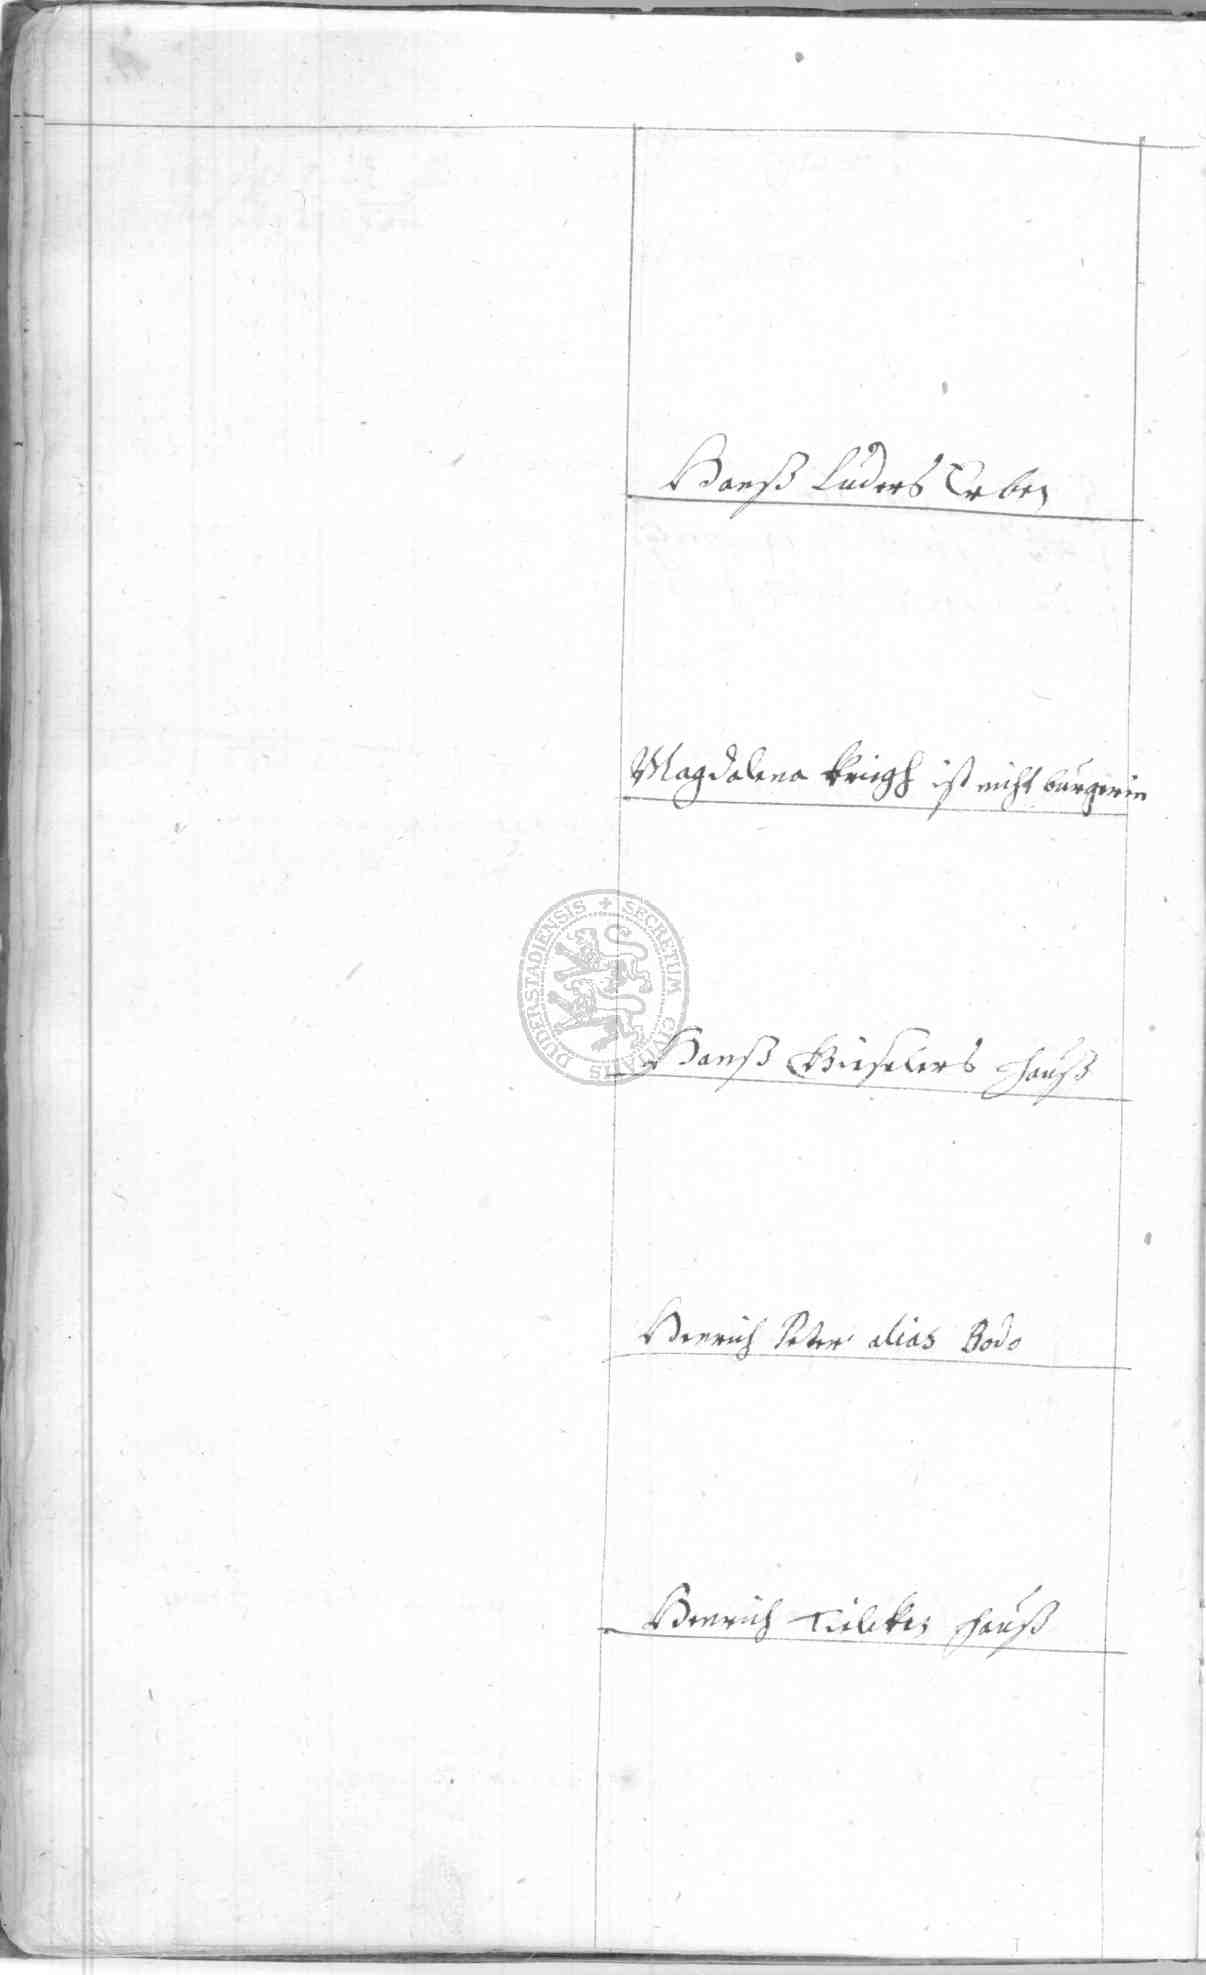 Hanß Lüders Erben
Magdalena Kriegh ist nicht bürgerin
SECRETUM CIVITATIS DUDERSTADIENSIS
Hanß Gieselers Hauß
Henrich Peter alias Bodo
Henrich Tieleken Hauß